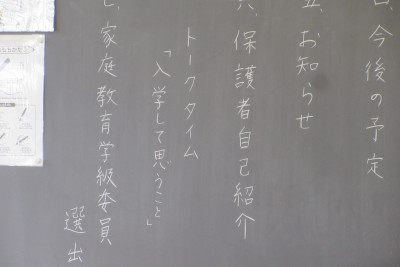 、今後の予定
五、お知らせ
六、保護者自己紹介
トークタイム
「入学して思うこと」
七、家庭教育学級委員
選出